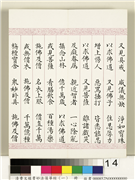 又見具戒 威儀無缺 淨如寶珠
以求佛道 又見佛子 住忍辱力
增上慢人 惡罵捶打 皆悉能忍
以求佛道 又見菩薩 離諸戲笑
及癡眷屬 親近智者 一心除亂
攝念山林 億千萬歲 以求佛道
或見菩薩 餚饍飲食 百種湯藥
施佛及僧 名衣上服 價直千萬
或無價衣 施佛及僧 千萬億種
栴檀寶舍 眾妙臥具 施佛及僧
14